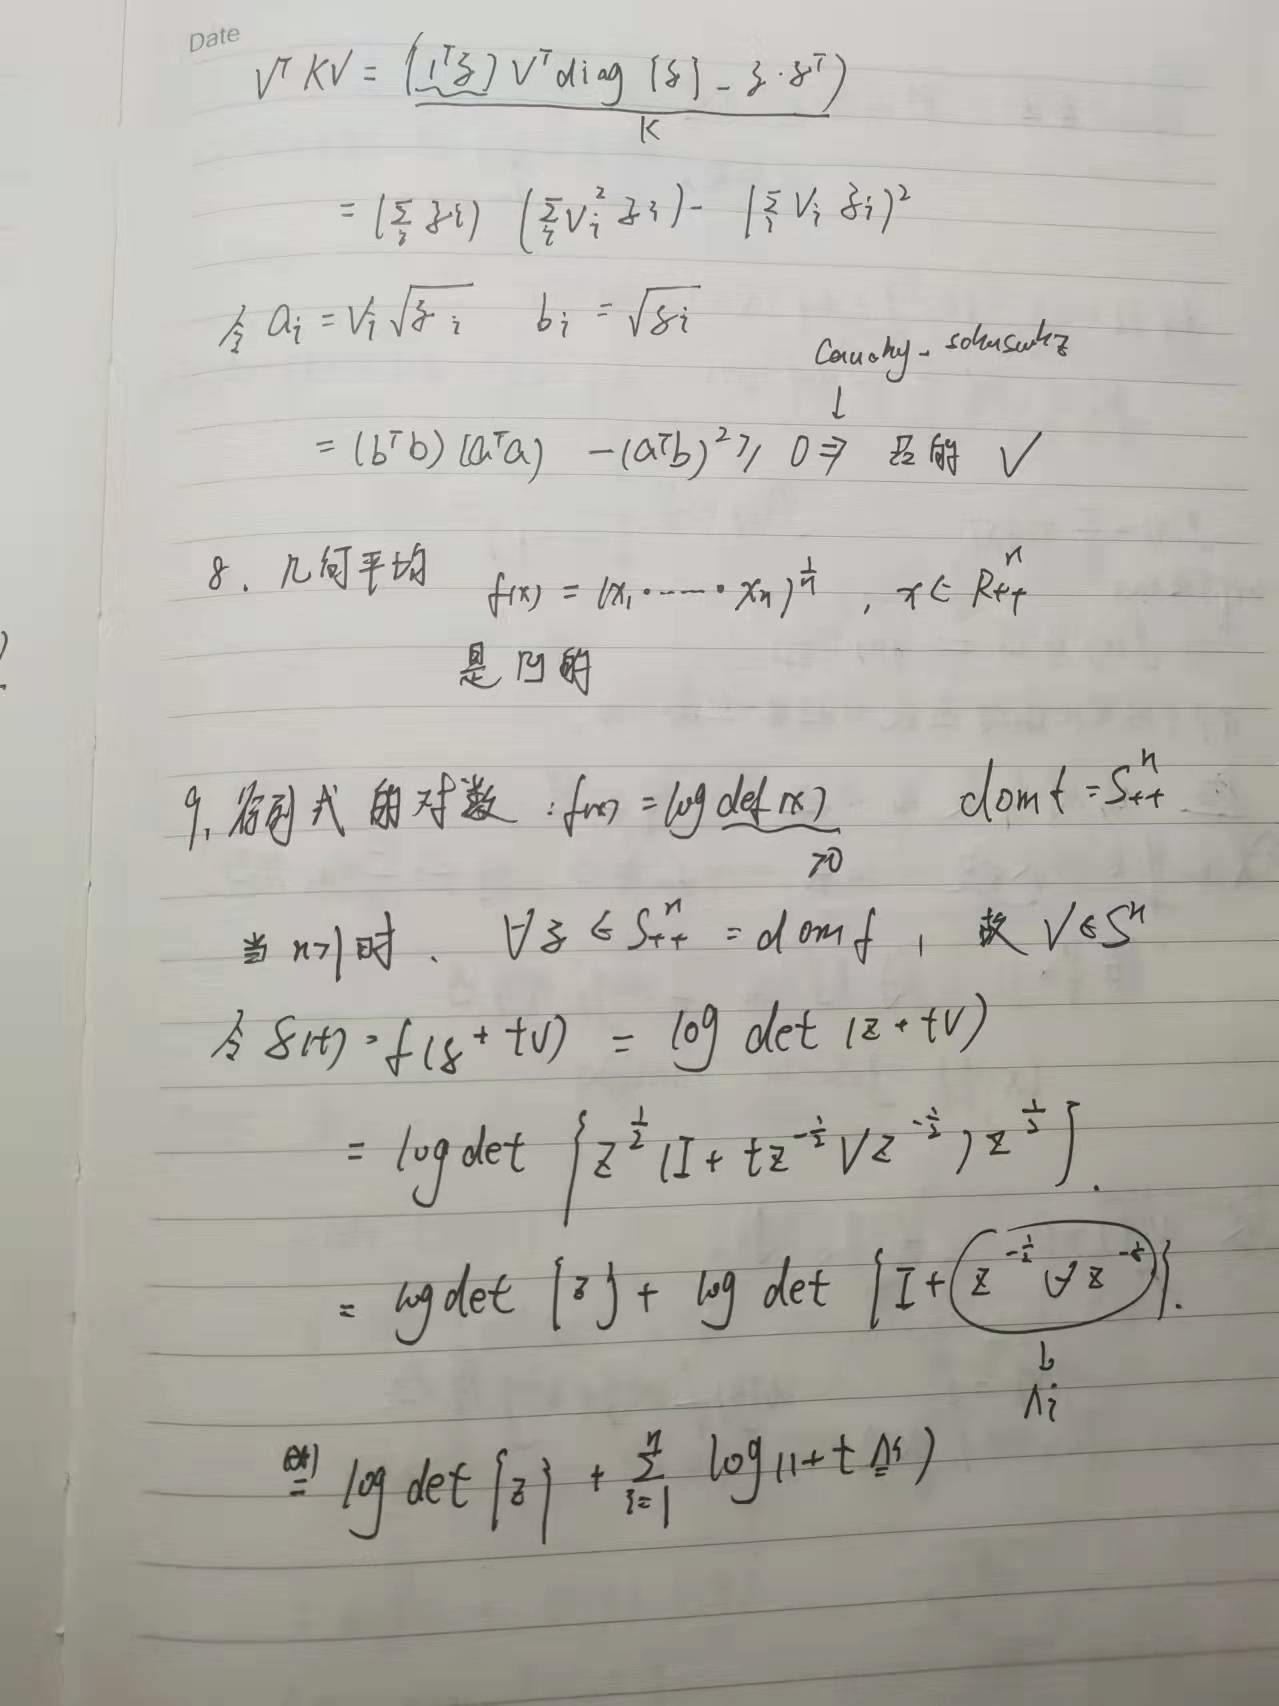 Date
V^T K V = (1^T z) V^T diag {z} - z·z^T)
K
= (∑_i z_i) (∑_i V_i^2 z_i) - (∑_i V_i z_i)^2
令 a_i = V_i √z_i b_i = √z_i
↓
= (b^T b) (a^T a) - (a^T b)^2 ≥ 0 ⇒ 的 ✓
8. 几何平均 f(x) = (x_1 · ······ · x_n)^{1/n} , x ∈ R_{++}^n
是凹的
9. 行列式的对数 : f(x) = log det(x) dom f = S_{++}^n
>0
当 n>1 时 . ∀ z ∈ S_{++}^n = dom f , 故 V ∈ S^n
令 g(t) = f(z + tV) = log det (z + tV)
= log det { z^{1/2} (I + t z^{-1/2} V z^{-1/2} ) z^{1/2} } .
= log det {z} + log det { I + z^{-1/2} V z^{-1/2} } .
↓
λ_i
= log det {z} + ∑_{i=1}^n log (1 + t λ_i)